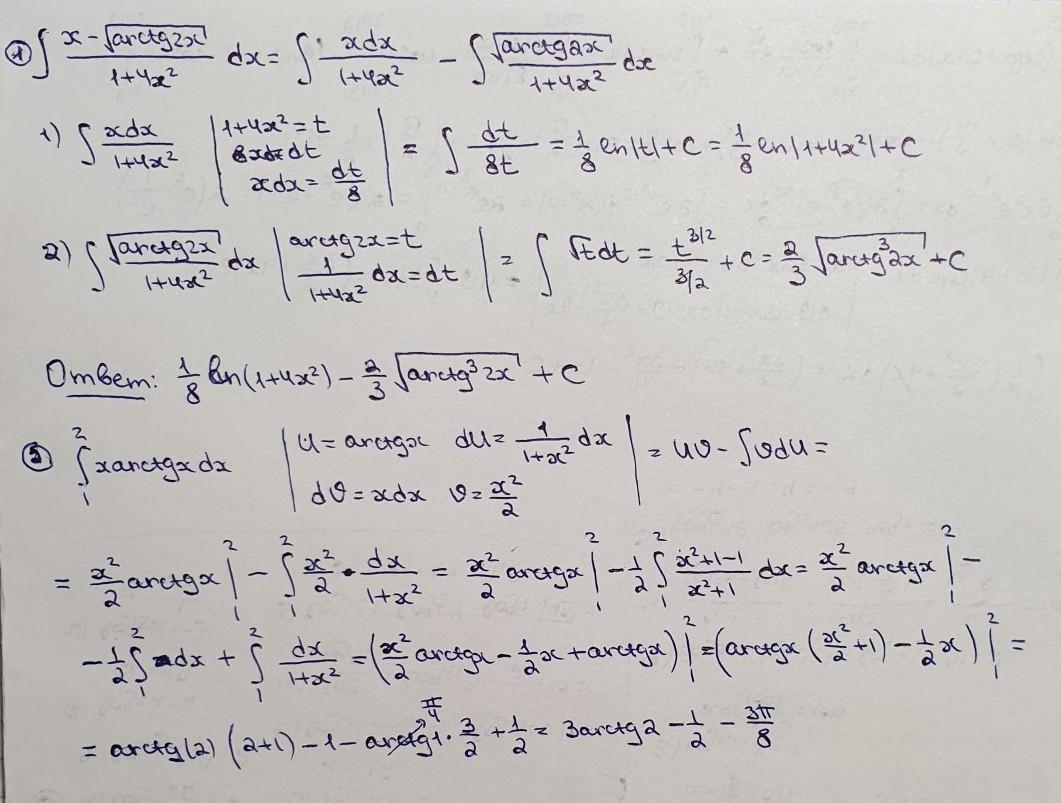 ① ∫ (x - √(arctg2x))/(1+4x²) dx = ∫ xdx/(1+4x²) - ∫ √(arctg2x)/(1+4x²) dx
1) ∫ xdx/(1+4x²) | 1+4x²=t 8xdx=dt xdx=dt/8 | = ∫ dt/8t = 1/8 ln|t|+C = 1/8 ln|1+4x²|+C
2) ∫ √(arctg2x)/(1+4x²) dx | arctg2x=t 1/(1+4x²) dx=dt | = ∫ √t dt = t^(3/2)/(3/2) + C = 2/3 √(arctg³2x) + C
Ответ: 1/8 ln(1+4x²) - 2/3 √(arctg³2x) + C
∫₁² xarctgx dx | U=arctgx dU=1/(1+x²) dx dV=xdx V=x²/2 | = UV - ∫VdU =
= x²/2 arctgx |₁² - ∫₁² x²/2 · dx/(1+x²) = x²/2 arctgx |₁² - 1/2 ∫₁² (x²+1-1)/(x²+1) dx = x²/2 arctgx |₁² -
- 1/2 ∫₁² dx + ∫₁² dx/(1+x²) = (x²/2 arctgx - 1/2 x + arctgx) |₁² = (arctgx (x²/2 + 1) - 1/2 x) |₁² =
= arctg(2) (2+1) - 1 - arctg1 π/4 · 3/2 + 1/2 = 3arctg2 - 1/2 - 3π/8